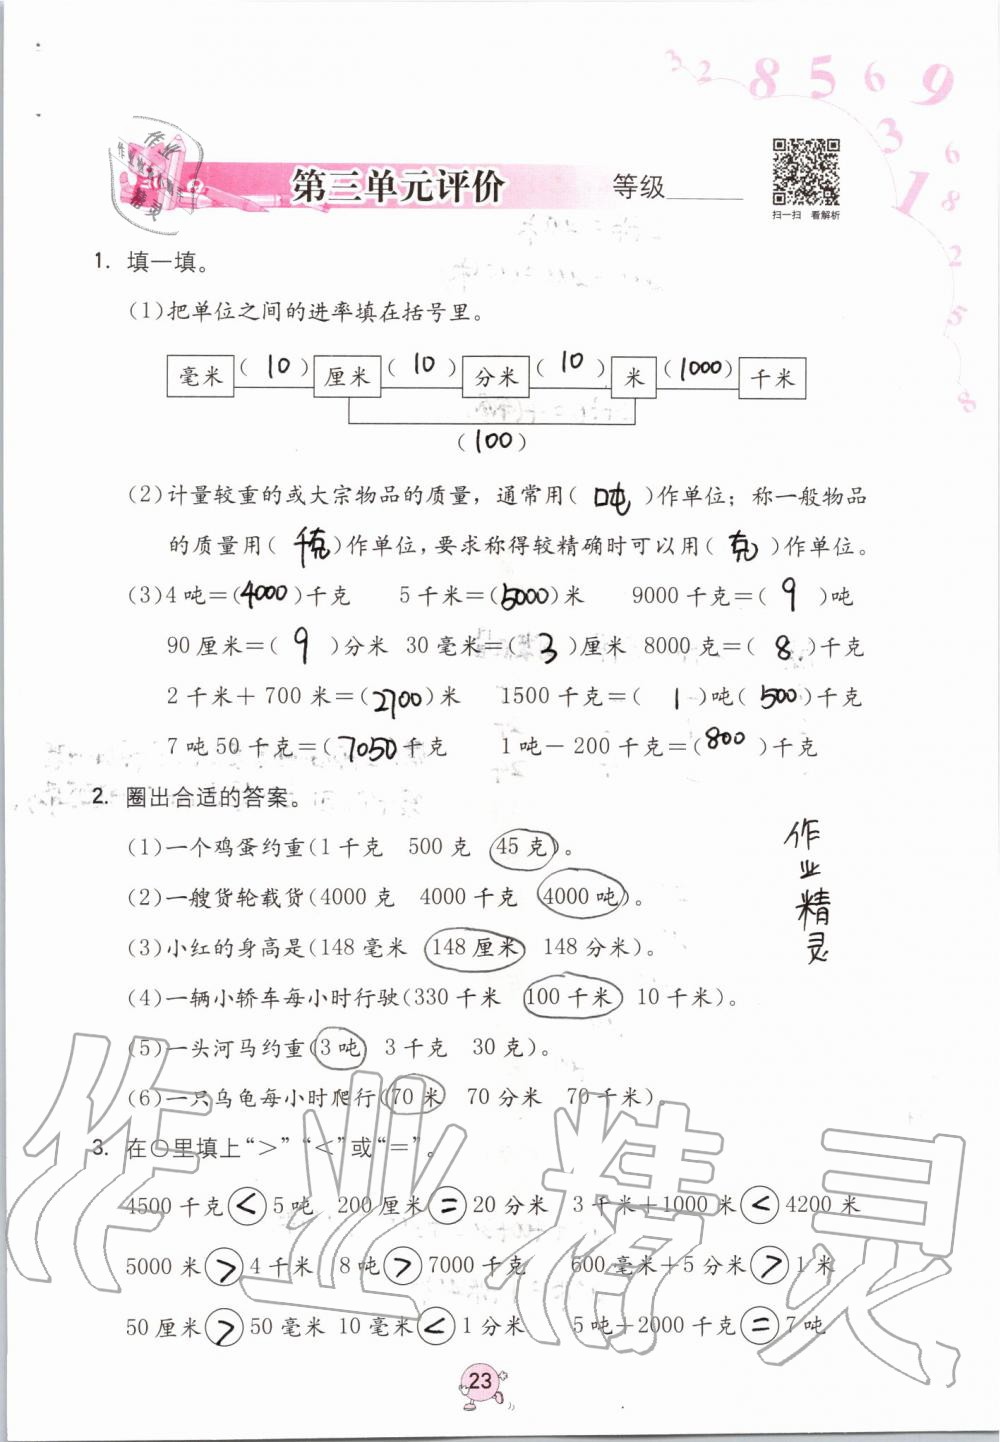 3 2 8 5 6 9 3 1 6 8 2 5 8
第三单元评价 等级
扫一扫 看解析
1. 填一填。
(1)把单位之间的进率填在括号里。
毫米 (10) 厘米 (10) 分米 (10) 米 (1000) 千米
(100)
(2)计量较重的或大宗物品的质量，通常用( 吨 )作单位；称一般物品
的质量用( 千克 )作单位，要求称得较精确时可以用( 克 )作单位。
(3)4吨=(4000)千克 5千米=(5000)米 9000千克=( 9 )吨
90厘米=( 9 )分米 30毫米=( 3 )厘米 8000克=( 8 )千克
2千米+700米=(2700)米 1500千克=( 1 )吨(500)千克
7吨50千克=(7050千克 1吨-200千克=(800 )千克
2. 圈出合适的答案。
(1)一个鸡蛋约重(1千克 500克 45克)。
(2)一艘货轮载货(4000克 4000千克 4000吨)。
(3)小红的身高是(148毫米 148厘米 148分米)。
(4)一辆小轿车每小时行驶(330千米 100千米 10千米)。
(5)一头河马约重(3吨 3千克 30克)。
(6)一只乌龟每小时爬行(70米 70分米 70千米)。
作业精灵
3. 在○里填上“>”“<”或“=”。
4500千克<5吨 200厘米=20分米 3千米+1000米<4200米
5000米>4千米 8吨>7000千克 600毫米+5分米>1米
50厘米>50毫米 10毫米<1分米 5吨+2000千克=7吨
23
作业精灵